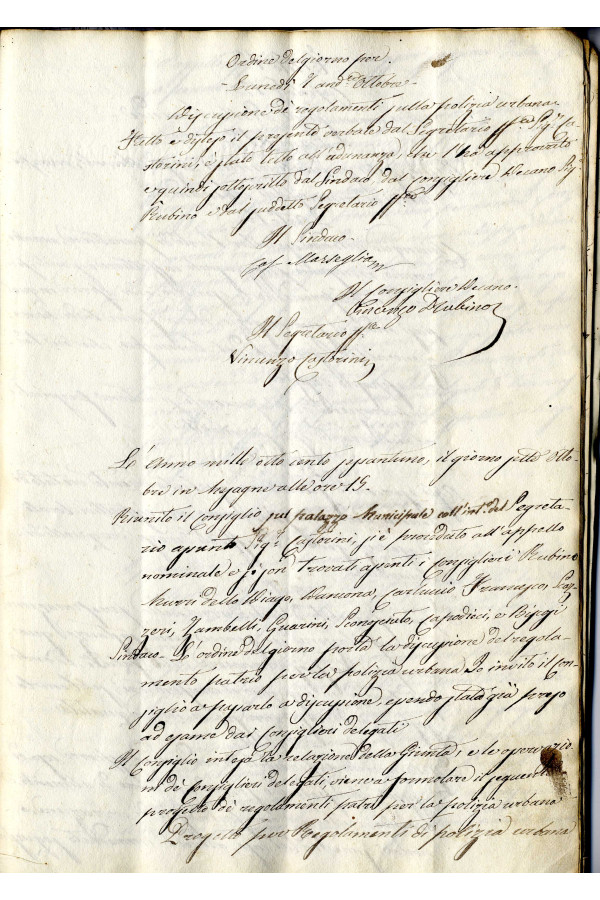 Ordine del giorno per
Lunedì 7 and.te Ottobre
Discussione de' regolamenti sulla polizia urbana
Fatto e disteso il presente verbale dal Segretario ff.te Sig.r Ca-
storini, è stato letto all'adunanza, che l'ha approvato
e quindi sottoscritto dal Sindaco dal consigliere Decano Sig.r
Rubino e dal suddetto Segretario ff.te
Il Sindaco
Marseglia
Il Consigliere Decano
Vincenzo Rubino
Il Segretario ff.te
Vincenzo Castorini
L'anno mille otto cento sessantuno, il giorno sette Otto-
bre in Mesagne alle ore 15-
Riunito il Consiglio nel palazzo Municipale coll'int.to del Segreta-
rio assunto Sig.r Castorini, si è proceduto all'appello
nominale e si son trovati assenti i consiglieri Rubino
Murri dello Diago, Cartuccio Francesco,
Zambelli, Guarini, Scongento, Capodieci, e
Sindaco- L'ordine del giorno porta la discussione del regola-
mento patrio per la polizia urbana. Io invito il con-
siglio a passarlo a discussione, essendo stata già preso
ad esame dai consiglieri delegati
Il Consiglio intesa la relazione della Giunta, e le osservazio-
ni de' Consiglieri delegati, viene a formolare il seguente
progetto de' regolamenti patri per la polizia urbana
Progetto per Regolamenti di polizia urbana